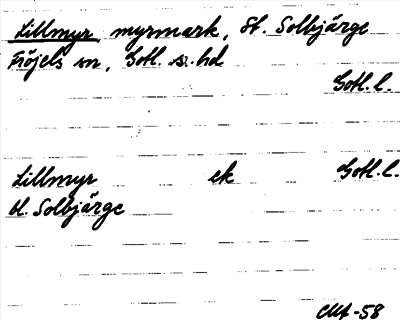 Lillmyr myrmark, St. Solbjärge
Fröjels sn, Gotl. s. hd
Gotl. l.
Lillmyr ek Gotl. l.
bl. Solbjärge
-58